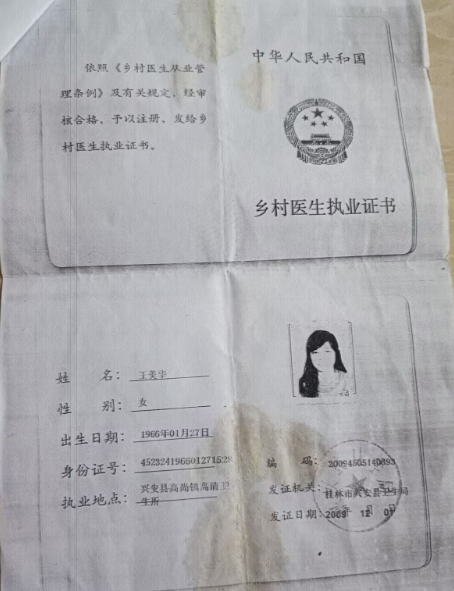 依照《乡村医生从业管
理条例》及有关规定，经审
核合格，予以注册，发给乡
村医生执业证书。
中华人民共和国
乡村医生执业证书
姓 名：王美华
性 别：女
出生日期：1966年01月27日
身份证号：452324196601271528
执业地点：兴安县高尚镇高清卫
生所
编 码：20094505140393
发证机关：桂林市兴安县卫生局
发证日期：2009 12 01